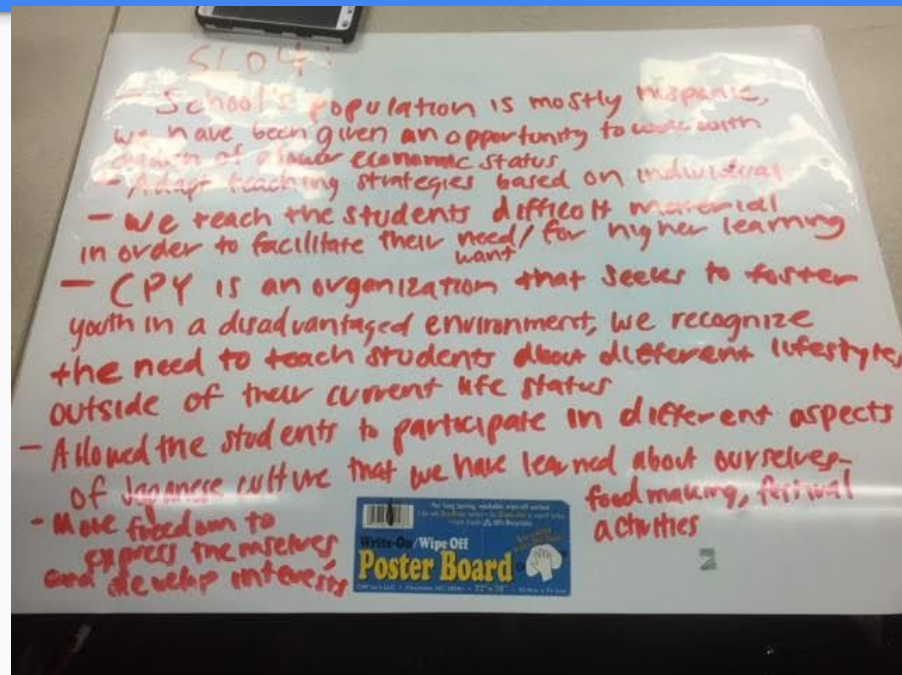 SLO4:
- School's population is mostly hispanic,
we have been given an opportunity to work with
children of a lower economic status
- Adapt teaching strategies based on individual
- we teach the students difficolt material
in order to facilitate their need/ for higher learning
want
- CPY is an organization that seeks to foster
youth in a disadvantaged environment, we recognize
the need to teach students about different lifestyles
outside of their current life status
- Allowed the students to participate in different aspects
of Japanese culture that we have learned about ourselves-
food making, festival
activities
- More freedom to
express themselves
and develop interests
Write-On/Wipe Off
Poster Board
2